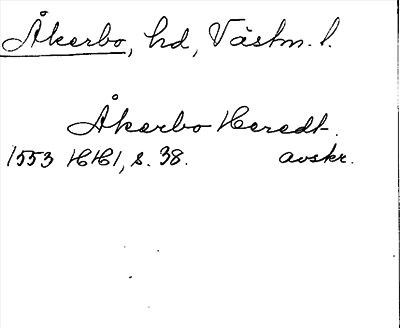 Åkerbo, hd, Västm. l.
Åkerbo Heredt.
1553 HH1, s. 38. avskr.